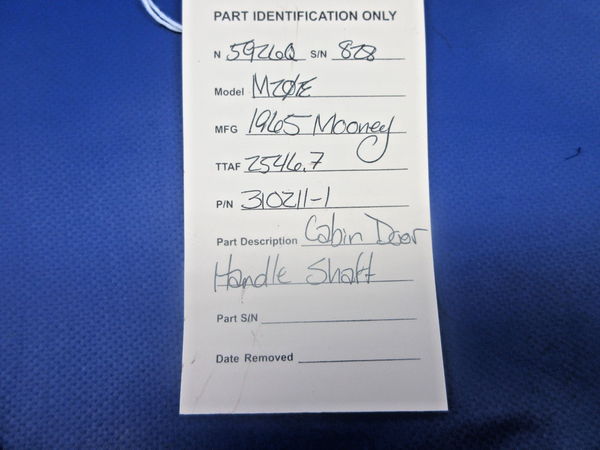 PART IDENTIFICATION ONLY
N 5926Q S/N 828
Model M20E
MFG 1965 Mooney
TTAF 2546.7
P/N 310211-1
Part Description Cabin Door
Handle Shaft
Part S/N
Date Removed